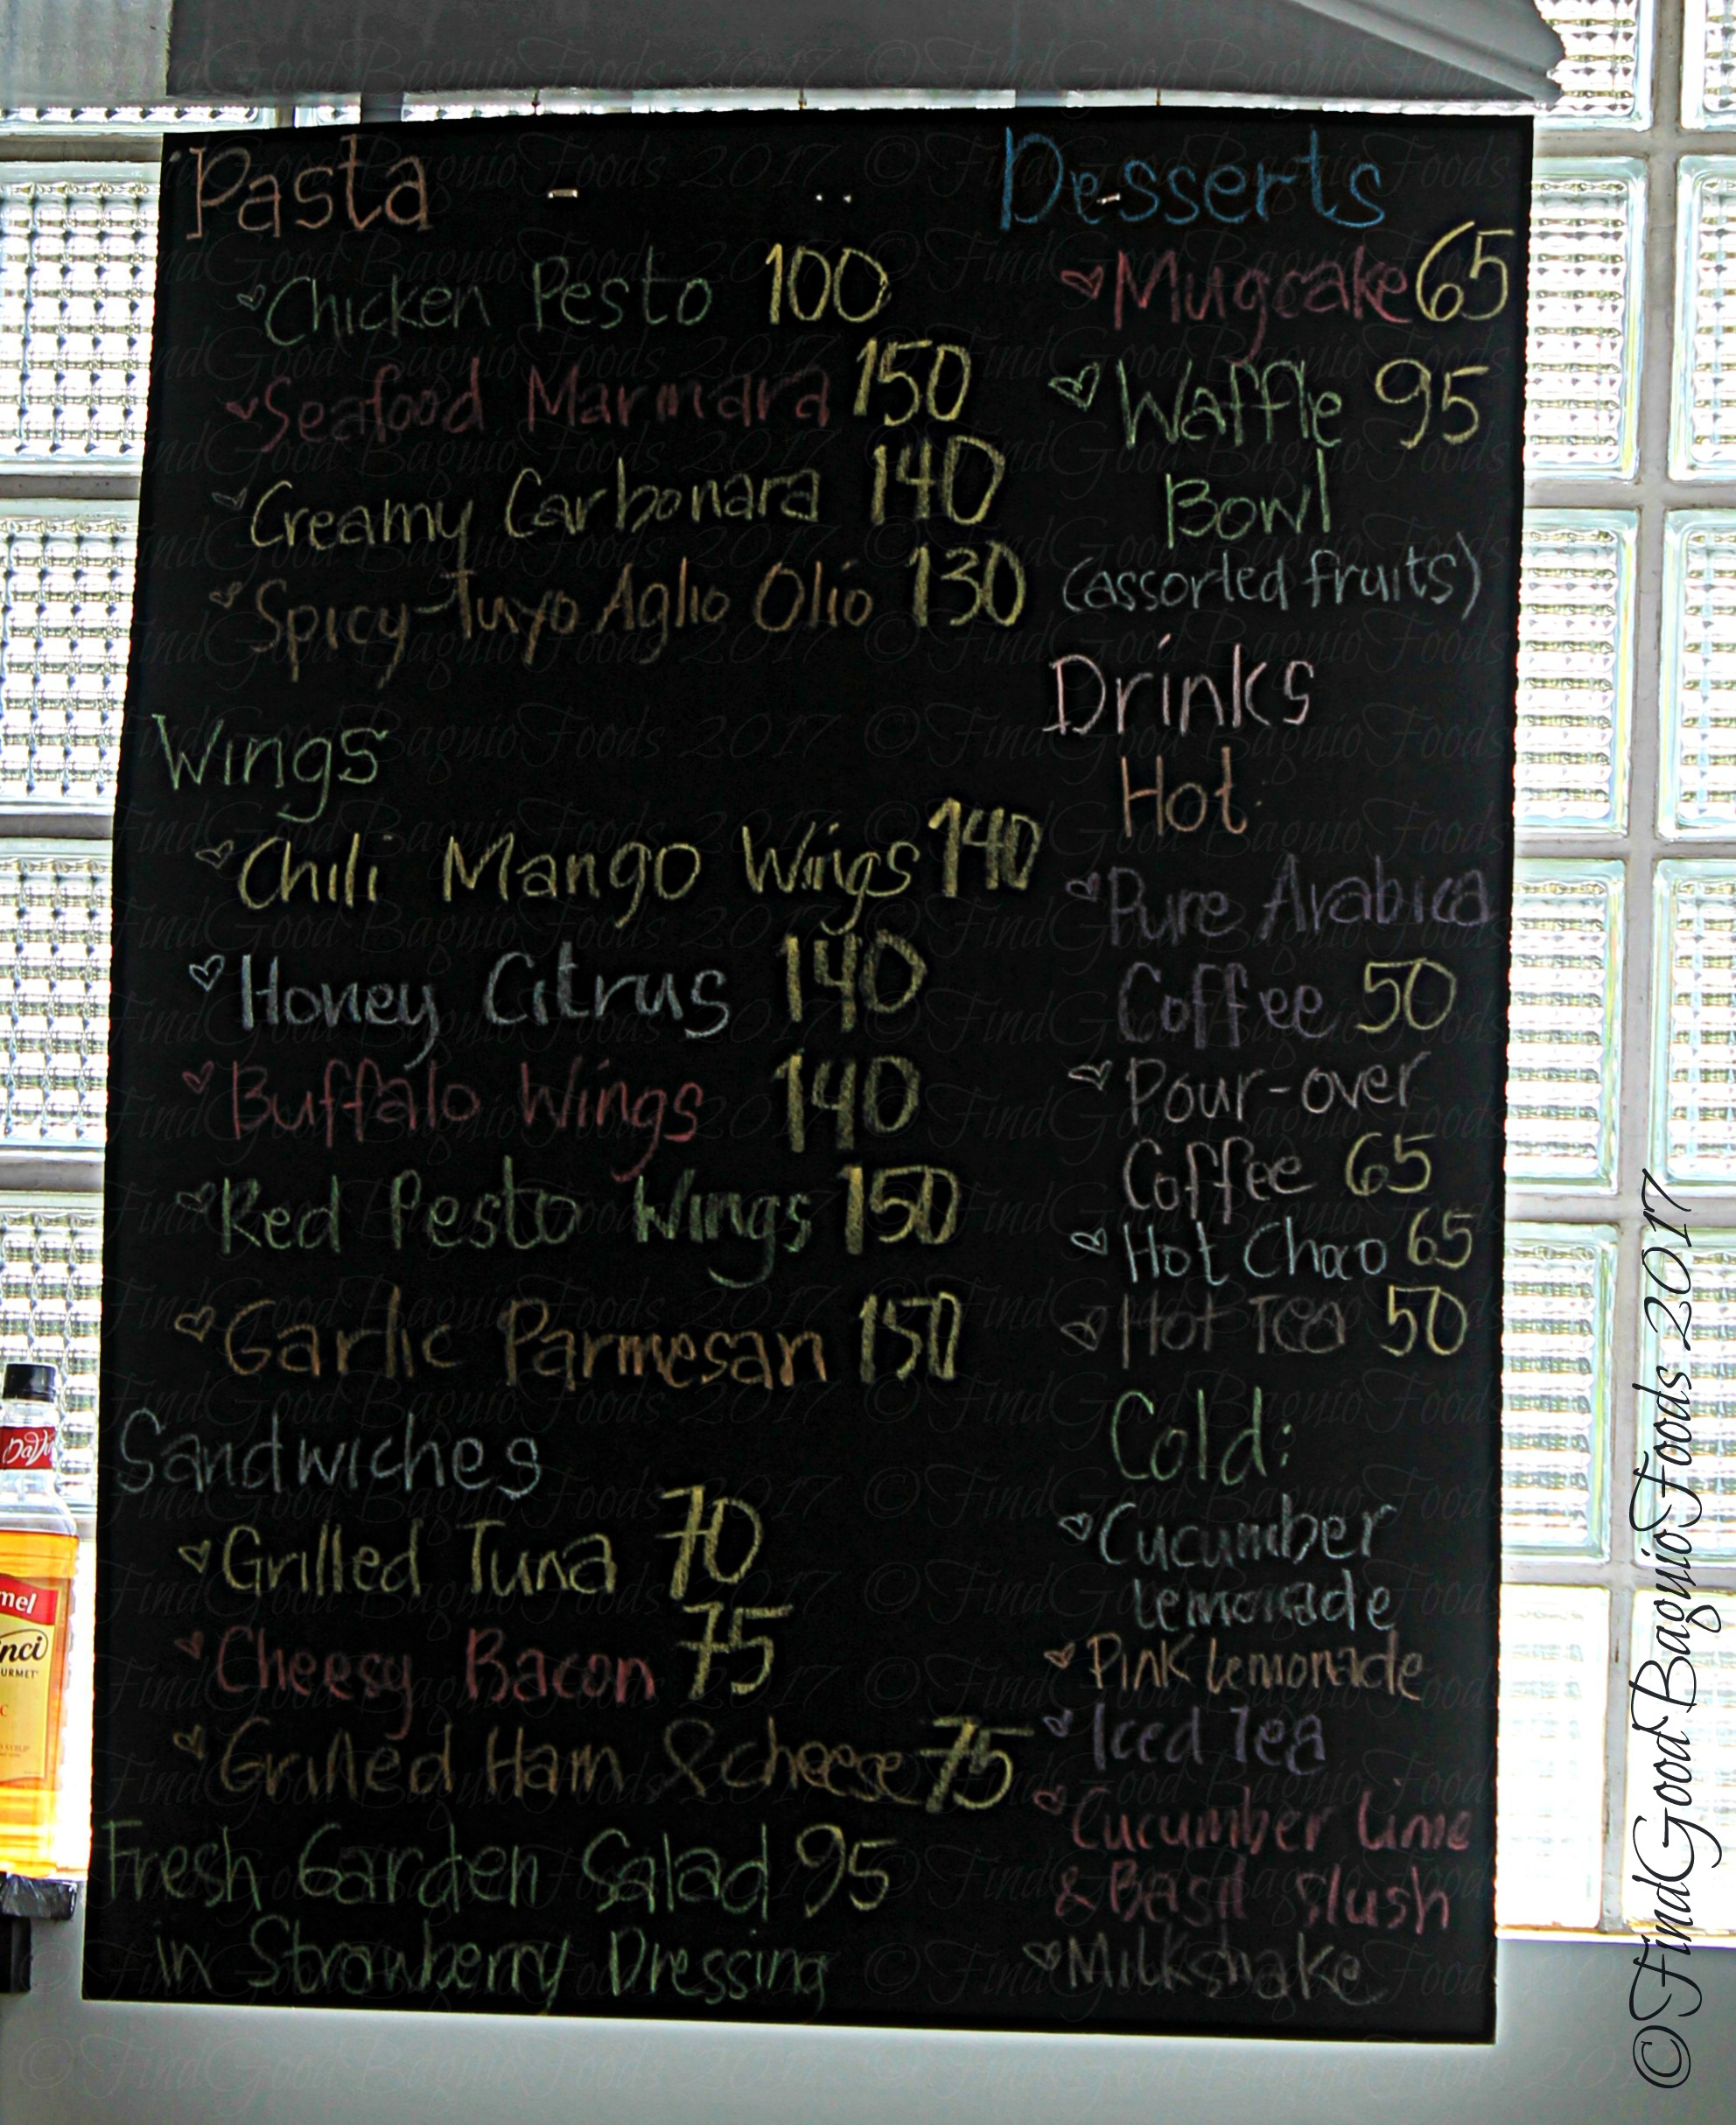 Pasta
Chicken Pesto 100
Seafood Marinara 150
Creamy Carbonara 140
Spicy Tuyo Aglio Olio 130
Wings
Chili Mango Wings 140
Honey Citrus 140
Buffalo Wings 140
Red Pesto Wings 150
Garlic Parmesan 150
Sandwiches
Grilled Tuna 70
Cheesy Bacon 75
Grilled Ham & cheese 75
Fresh Garden Salad 95
in Strawberry Dressing
Desserts
Mugcake 65
Waffle 95
Bowl
(assorted fruits)
Drinks
Hot:
Pure Arabica
Coffee 50
Pour-over
Coffee 65
Hot Choco 65
Hot Tea 50
Cold:
Cucumber
Lemonade
Pink Lemonade
Iced Tea
Cucumber Lime
& Basil Slush
Milkshake
©FindGoodBaguioFoods 2017